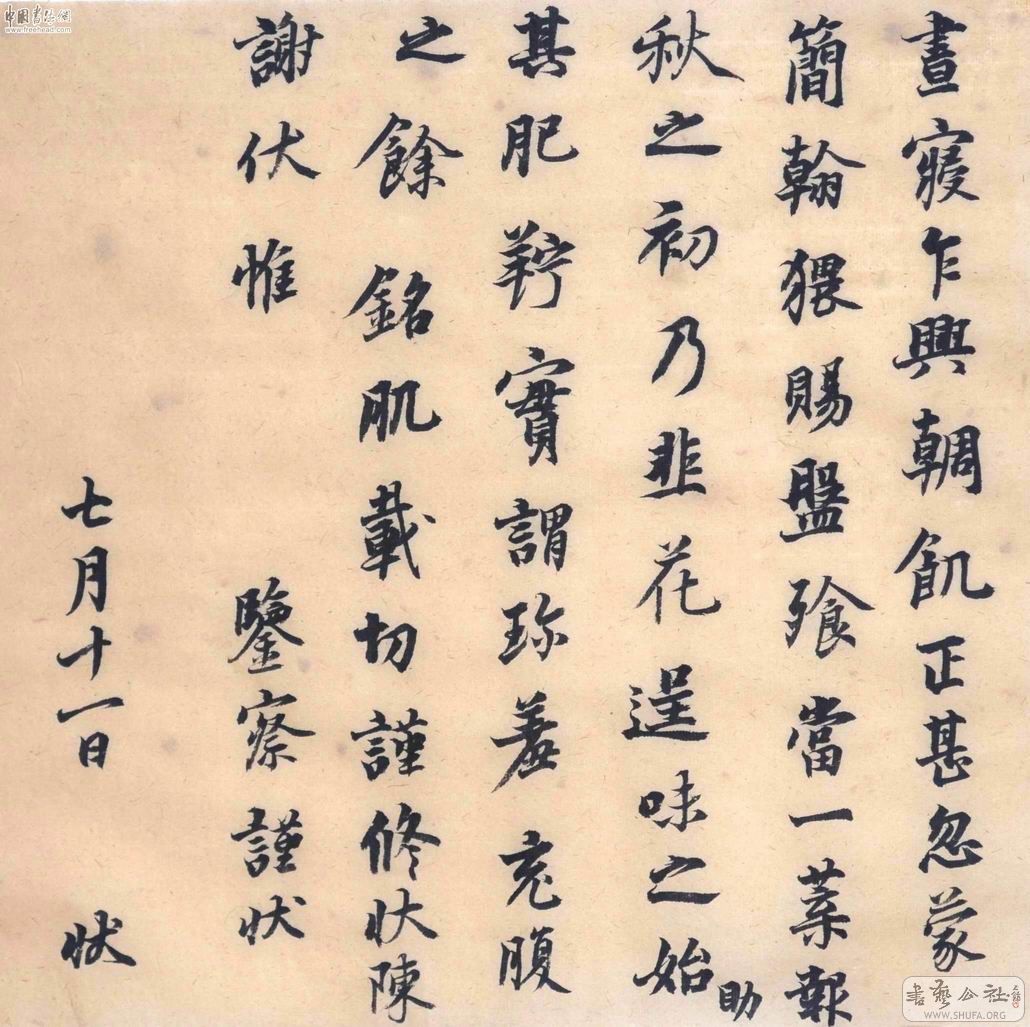 晝寢乍興輖飢正甚忽蒙
簡翰猥賜盤飧當一葉報
秋之初乃韭花逞味之始
助
其肥羜實謂珍羞充腹
之餘銘肌載切謹修狀陳
謝伏惟
鑒察謹狀
七月十一日
狀
中国书法网
www.freehead.com
書藝公社
WWW.SHUFA.ORG